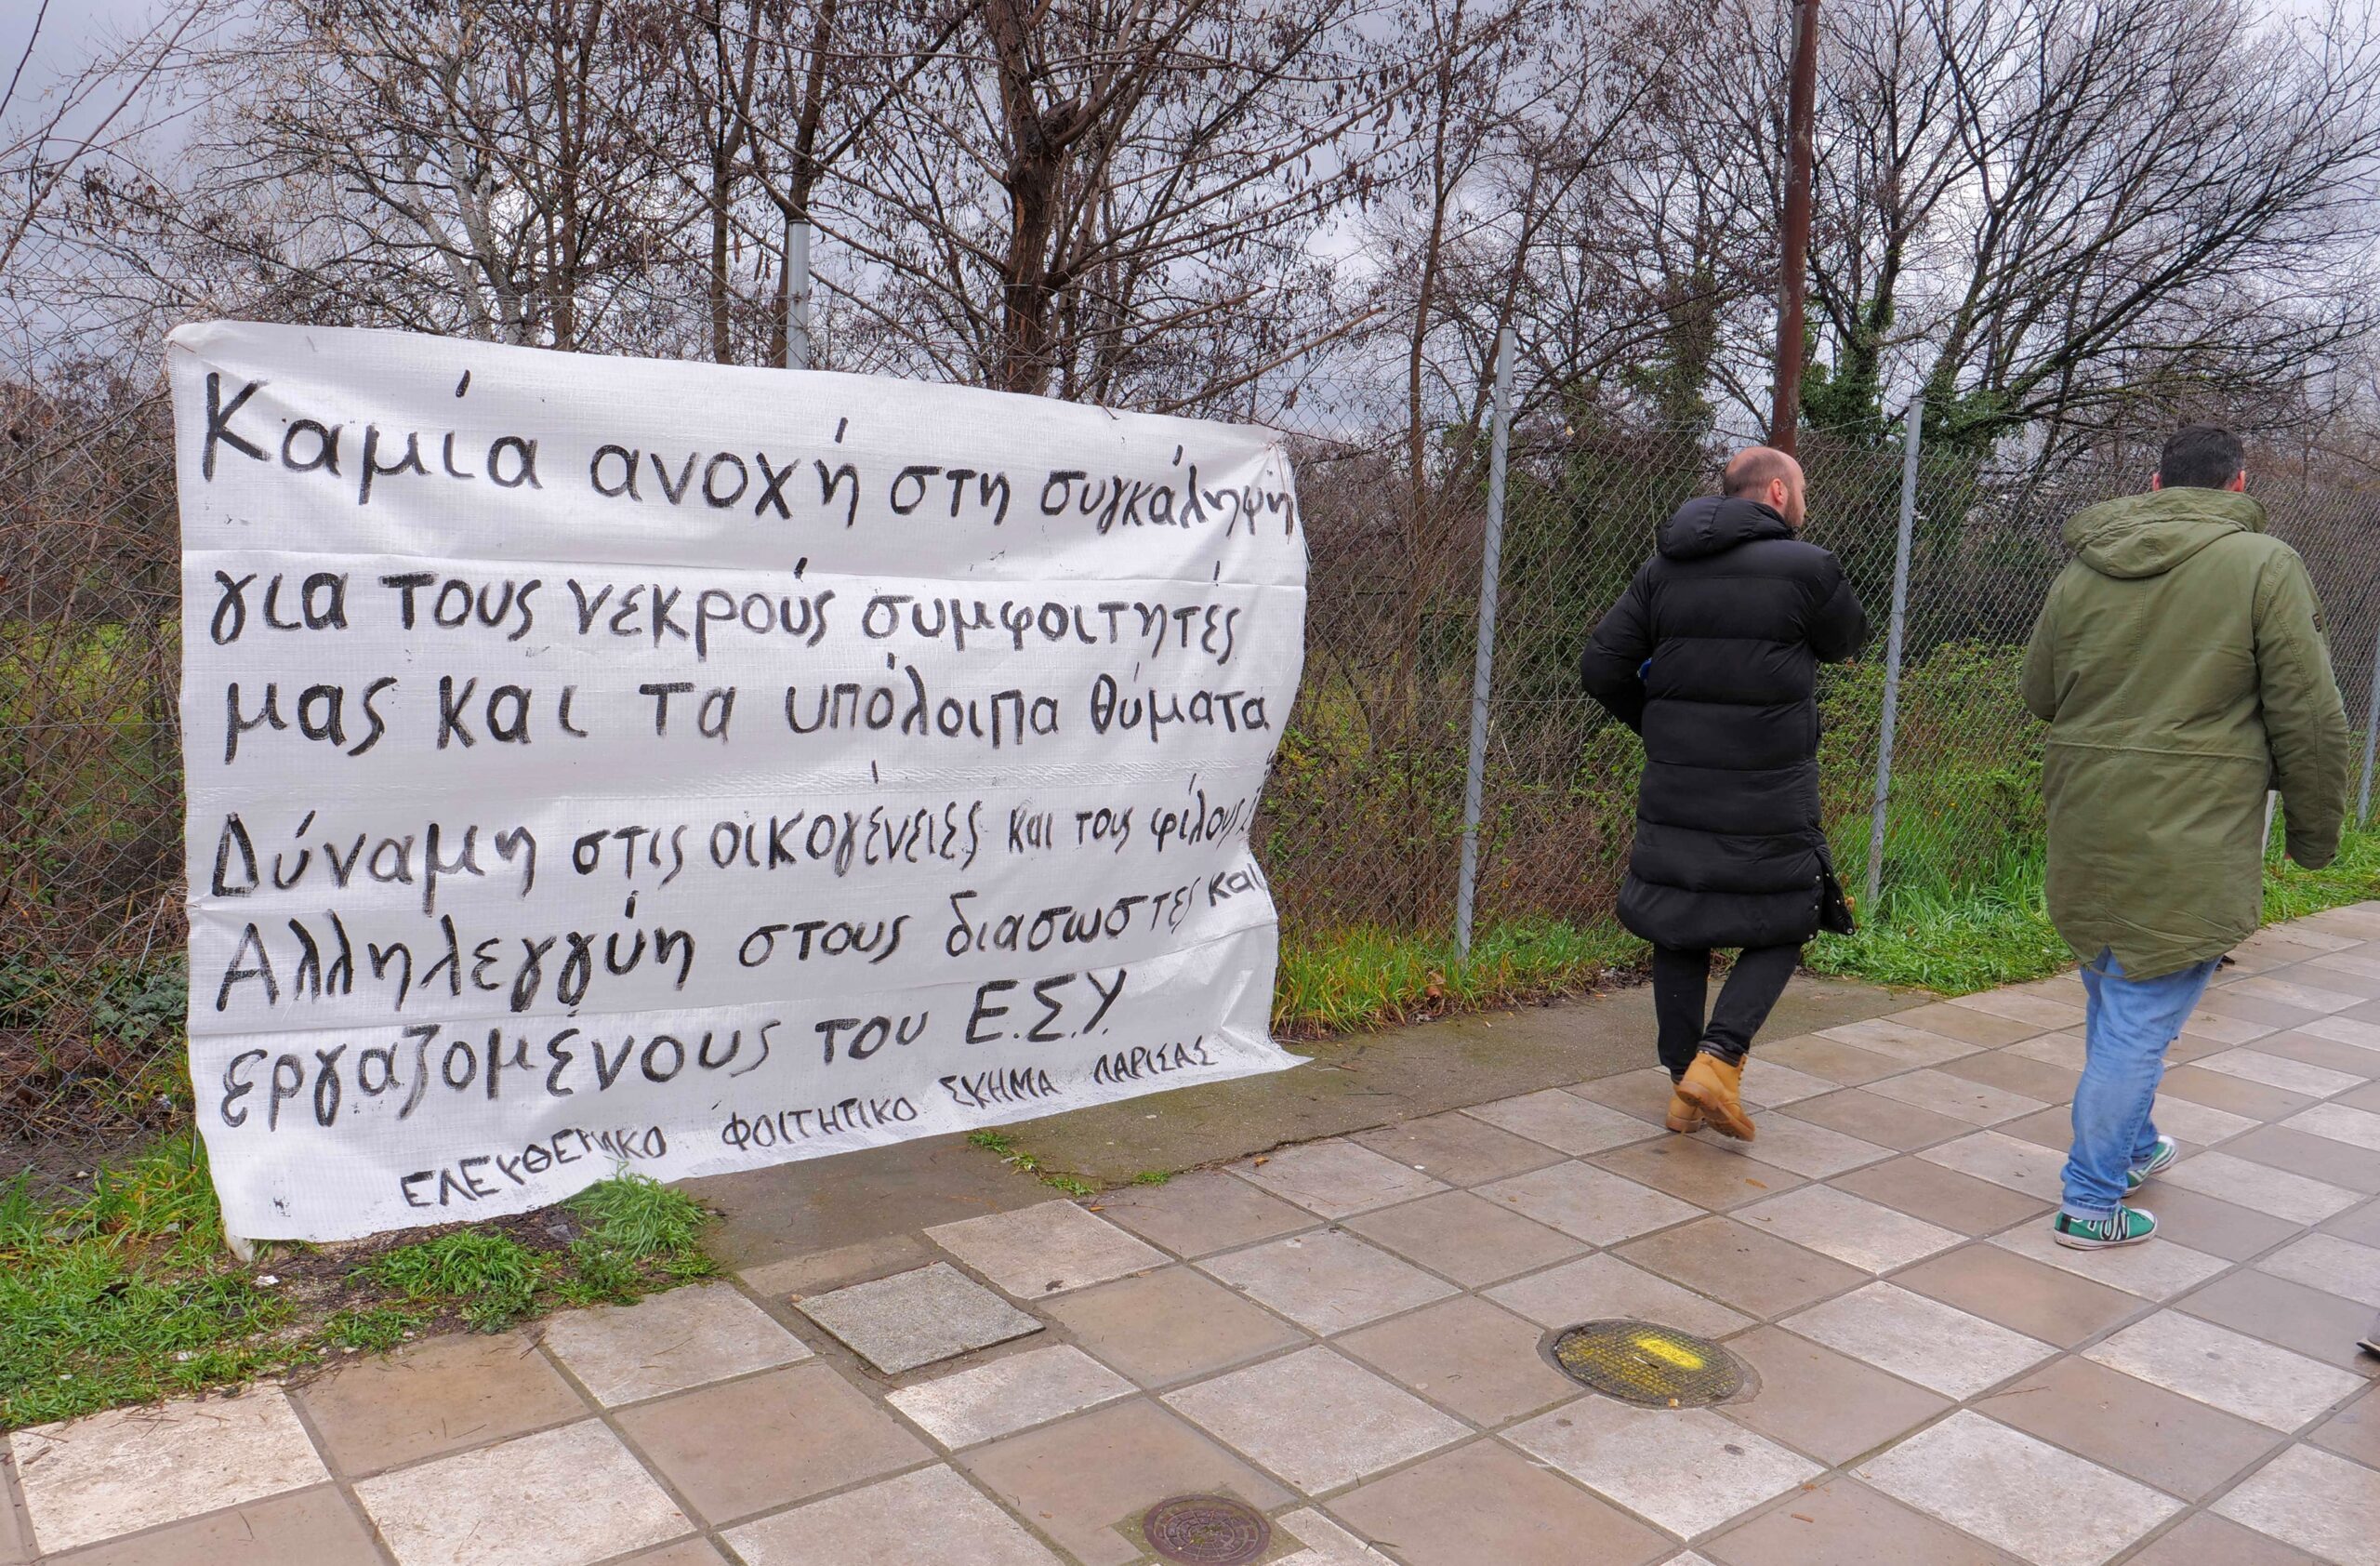 Καμία ανοχή στη συγκάληψη
για τους νεκρούς συμφοιτητές
μας και τα υπόλοιπα θύματα
Δύναμη στις οικογένειες και τους φίλους
Αλληλεγγύη στους διασωστες και
εργαζομένους του Ε.Σ.Υ.
ΕΛΕΥΘΕΡΙΑΚΟ ΦΟΙΤΗΤΙΚΟ ΣΧΗΜΑ ΛΑΡΙΣΑΣ